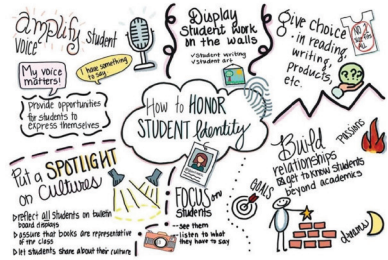 amplify student
voice
My voice
matters!
I have something
to say
provide opportunities
for students to
express themselves
Display
student work
on the walls
✓student writing
✓student art
give choice
in reading,
writing,
products,
etc.
???
How to HONOR
STUDENT Identity
Put a SPOTLIGHT
on Cultures
reflect all students on bulletin
board displays
assure that books are representative
of the class
let students share about their culture
FOCUS on
students
--see them
--listen to what
they have to say
Build
relationships
& get to know students
beyond academics
PASSIONS
GOALS
dreams